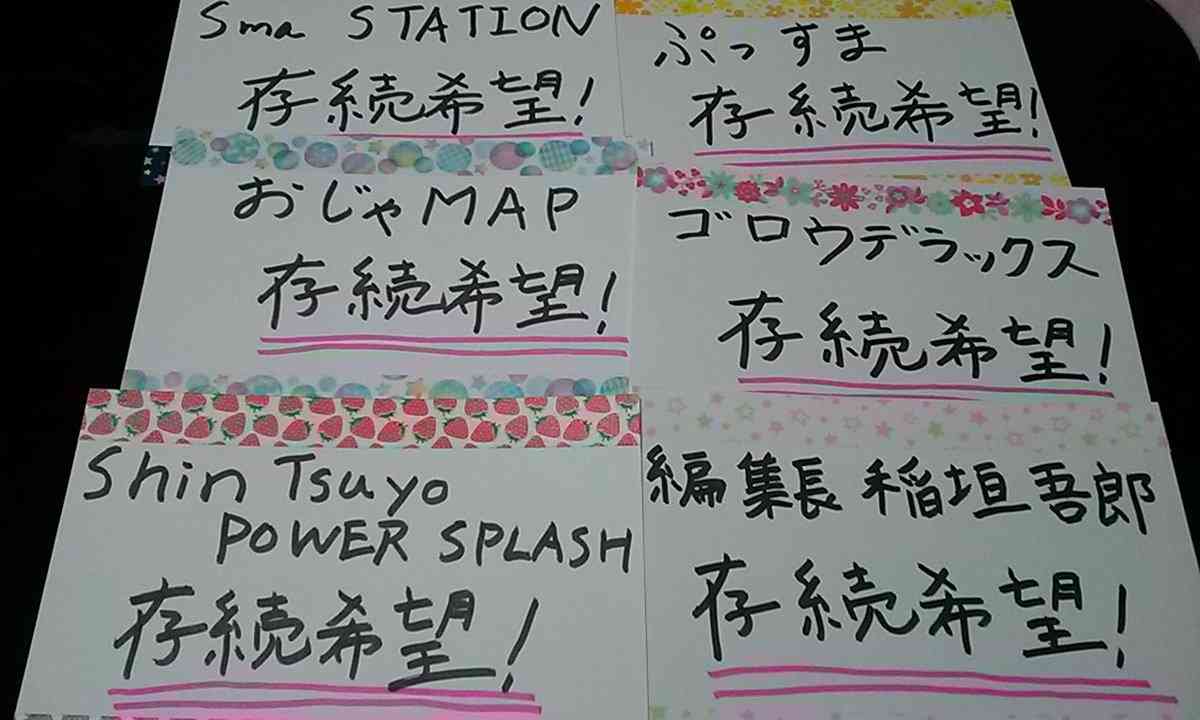 Sma STATION
存続希望!
ぷっすま
存続希望!
おじゃMAP
存続希望!
ゴロウデラックス
存続希望!
Shin Tsuyo
POWER SPLASH
存続希望!
編集長 稲垣吾郎
存続希望!